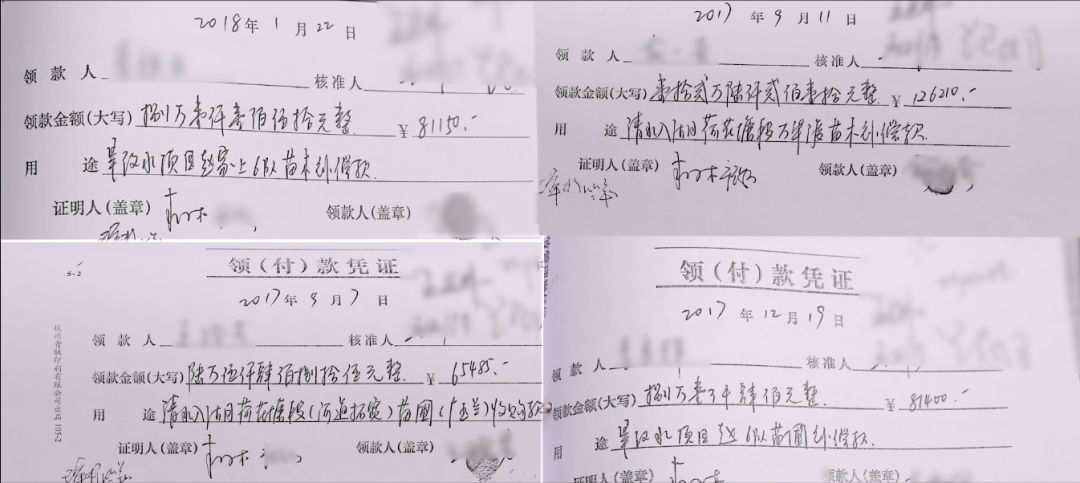 2018年 1 月 22 日
领 款 人
核准人
领款金额(大写) 捌万壹仟壹佰伍拾元整 ¥ 81150.-
用 途 旱改水项目 苗木补偿款
证明人(盖章)
领款人(盖章)
2017 年 9 月 11 日
领 款 人
核准人
领款金额(大写) 壹拾贰万陆仟贰佰壹拾元整 ¥ 126210.-
用 途 清水入湖目荷花塘段 苗木补偿款
证明人(盖章)
领款人(盖章)
5-2
领(付)款凭证
2017年 9 月 7 日
杭州青联印刷有限公司出品 105-2
领 款 人
核准人
领款金额(大写) 陆万伍仟肆佰捌拾伍元整 ¥ 65485.-
用 途 清水入湖目荷花塘段(河道拓宽)苗圃
证明人(盖章)
领款人(盖章)
领(付)款凭证
2017 年 12 月 19 日
领 款 人
核准人
领款金额(大写) 捌万壹仟肆佰元整 ¥ 81400.-
用 途 旱改水项目 苗圃补偿款
证明人(盖章)
领款人(盖章)